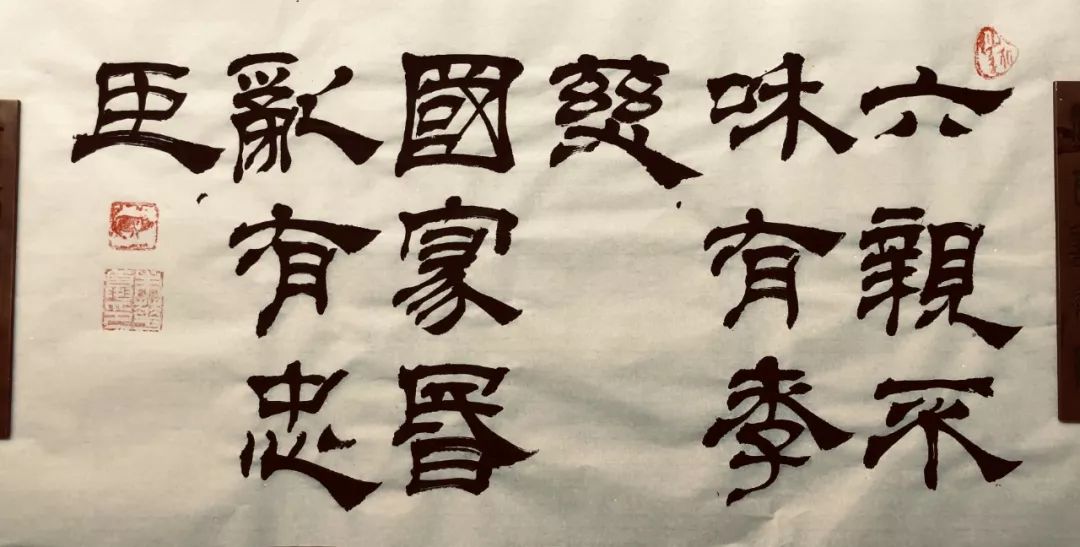 六親不
咊有孝
慈
國家昬
亂有忠
臣